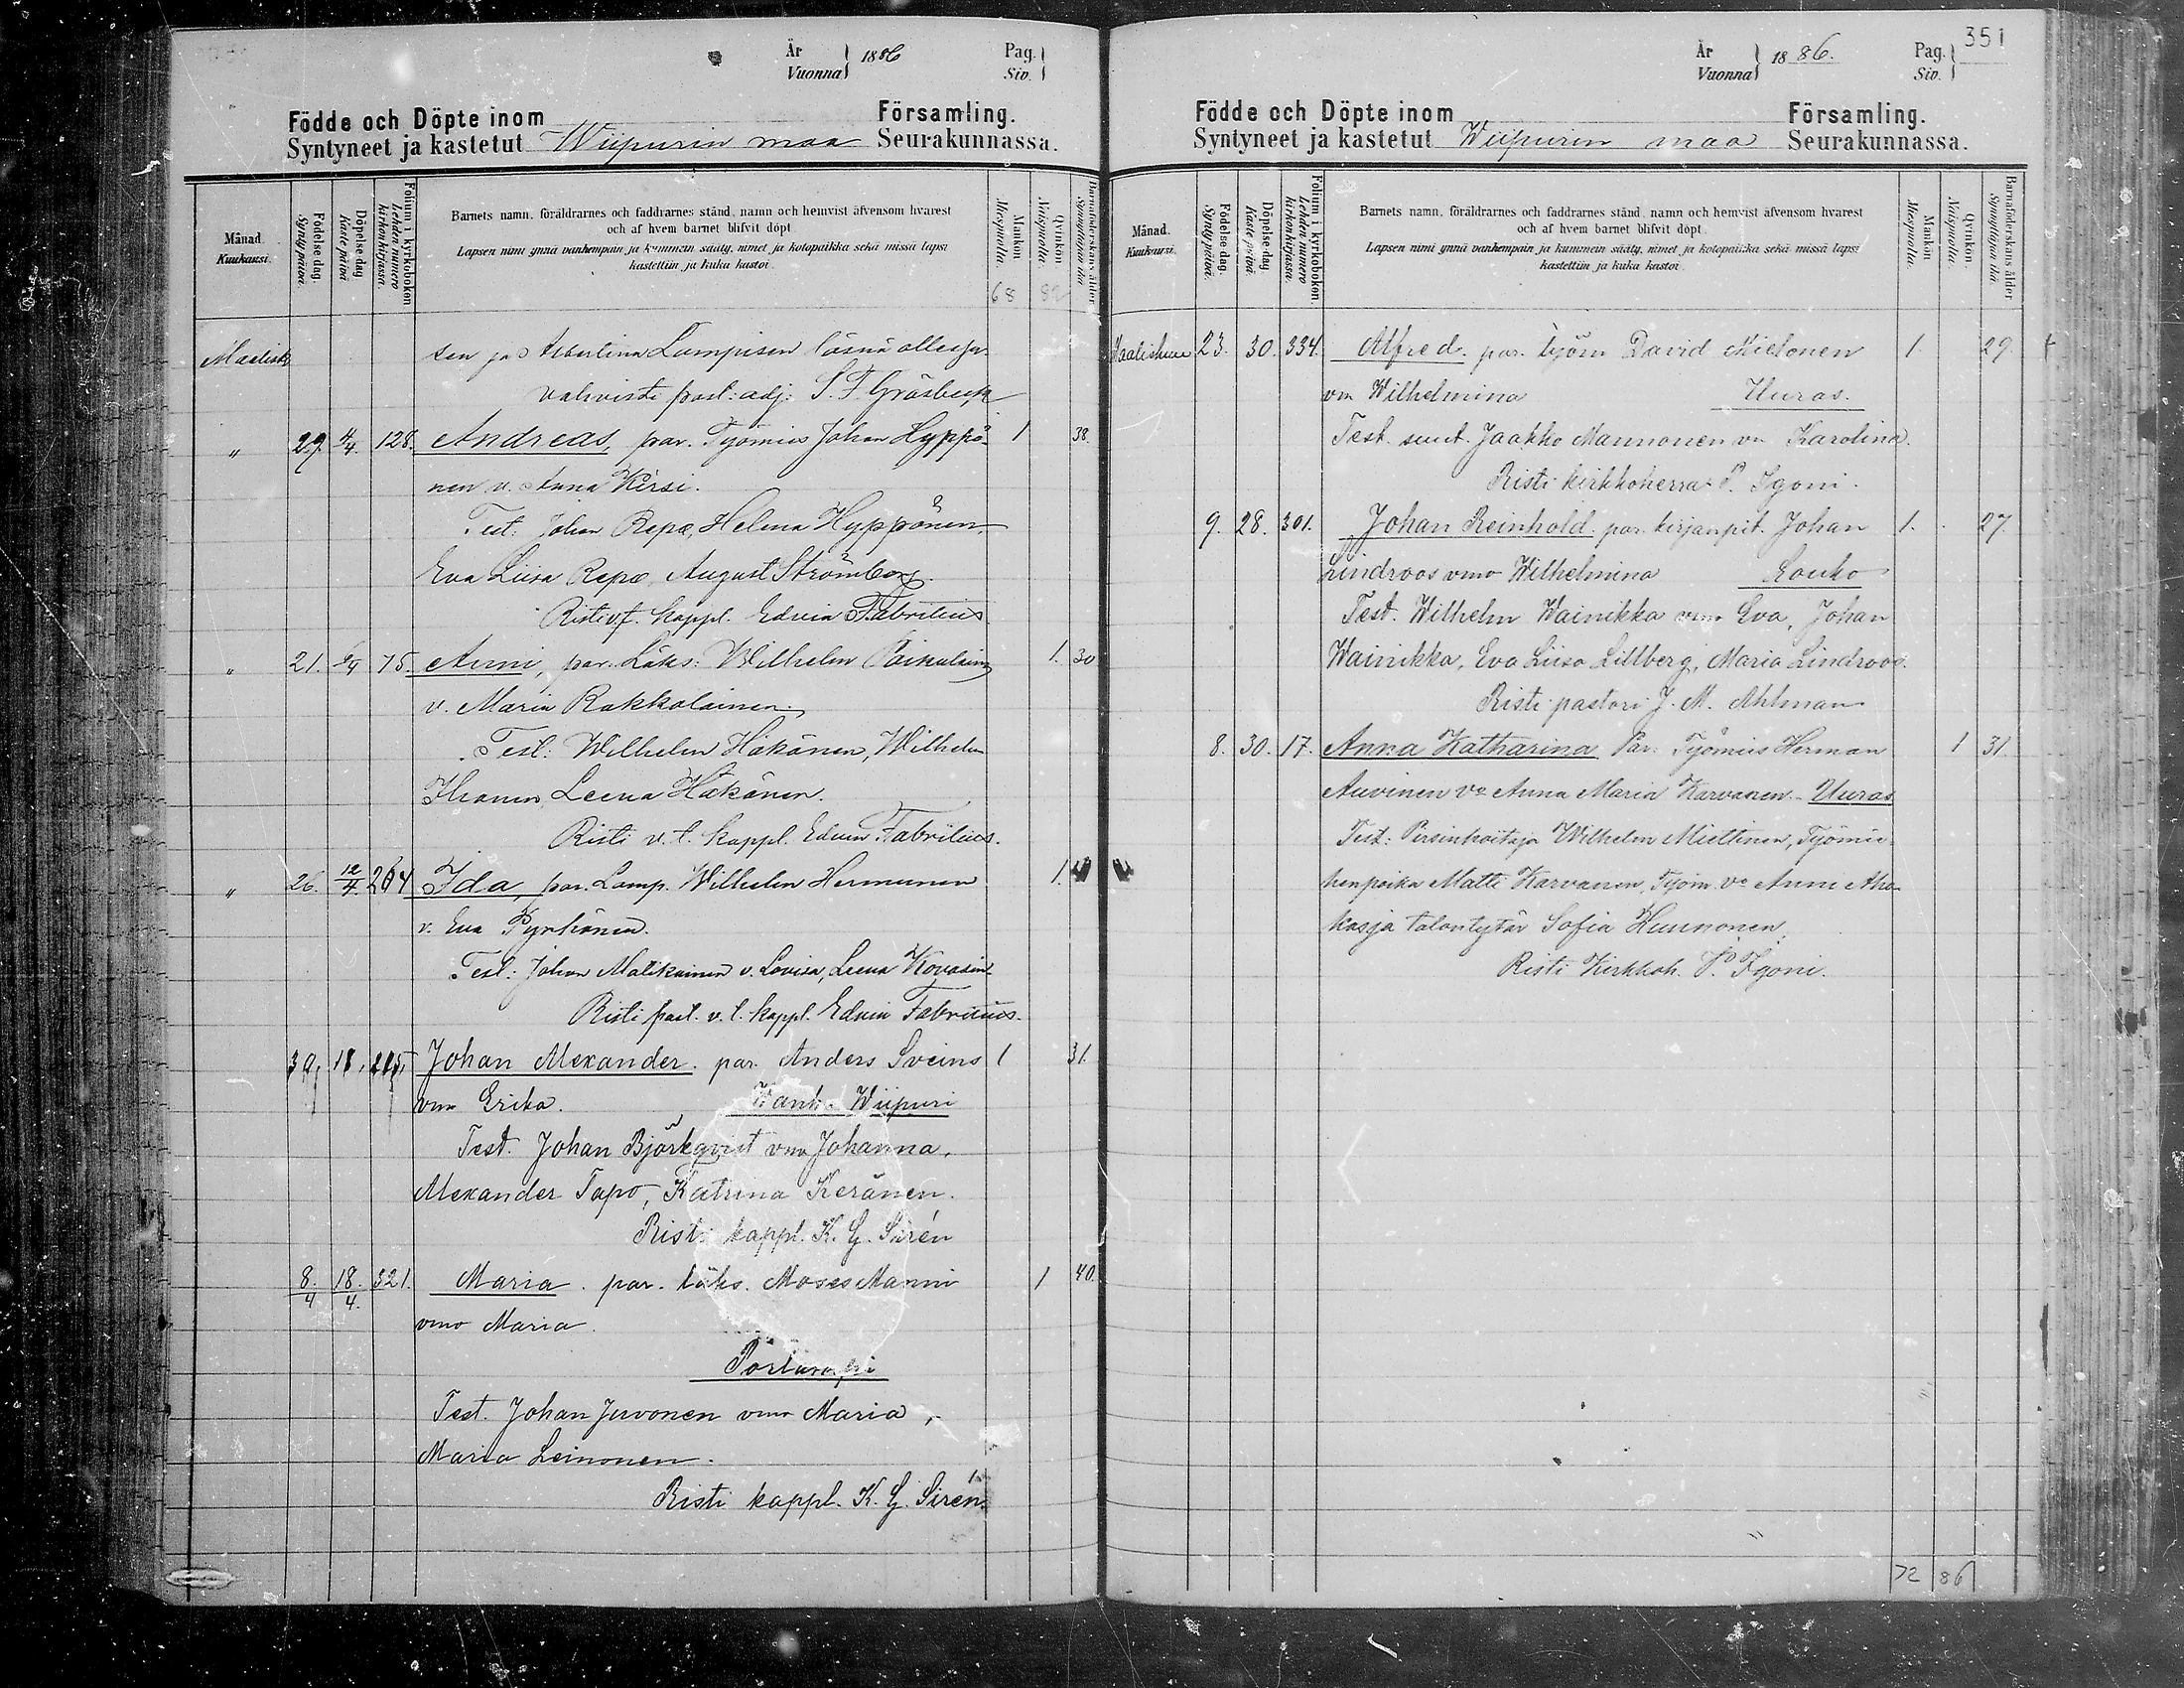 År Vuonna 1886 Pag. Siv.
Födde och Döpte inom Församling.
Syntyneet ja kastetut Wiipurin maa Seurakunnassa.
Månad. Kuukausi.
Födelse dag. Synty päivä.
Döpelse dag. Kaste päivä.
Folium i kyrkobokon. Lehden numero kirkonkirjassa.
Barnets namn, föräldrarnes och faddrarnes stånd, namn och hemvist äfvensom hvarest
och af hvem barnet blifvit döpt.
Lapsen nimi ynnä vanhempain ja kummein sääty, nimet ja kotopaikka sekä missä lapsi
kastettiin ja kuka kastoi.
Mankön. Miespuolta.
Qvinkön. Naispuolta.
Barnaföderskans ålder Synnyttäjän ikä
68 82
Maalisk ten ja Albertina Lampisen läsnä ollessa
vahvisti past: adj: S. F. Gräsbeck
" 29. 4/4. 128. Andreas, par. Työmies Johan Hyppö- 1 38.
nen v. Anna Kirsi.
Test: Johan Repo, Helena Hyppönen,
Eva Liisa Repo, August Strömberg.
Risti v.t. kappl. Edvin Fabritius
" 21. 75. Anni, par. Läks: Wilhelm 1. 30
v. Maria Rakkolainen.
Test: Wilhelm Häkönen, Wilhelm
Ihonen, Leena Häkönen.
Risti v. t. kappl. Edvin Fabritius.
" 26. 12/4. 264 Ida, par. Lamp. Wilhelm Hermunen 1.
v. Eva Pyrhönen.
Test: Johan Matikainen v. Lovisa, Leena
Risti past. v. t. kappl. Edvin Fabritius.
30, 18, 215, Johan Alexander. par. Anders Sveins 1 31.
vmo Erika. Wanh. Wiipuri
Test. Johan Björkqvist vmo Johanna,
Alexander Tapo, Katrina Keränen.
Risti kappl. K. G. Sirén
8/4 18/4. 321. Maria. par. läks. Moses Manni 1 40.
vmo Maria.
Test. Johan Juvonen vmo Maria,
Maria Leinonen.
Risti kappl. K. G. Sirén.
351
År Vuonna 1886. Pag. Siv.
Födde och Döpte inom Församling.
Syntyneet ja kastetut Wiipurin maa Seurakunnassa.
Månad. Kuukausi.
Födelse dag. Synty päivä.
Döpelse dag. Kaste päivä.
Folium i kyrkobokon. Lehden numero kirkonkirjassa.
Barnets namn, föräldrarnes och faddrarnes stånd, namn och hemvist äfvensom hvarest
och af hvem barnet blifvit döpt.
Lapsen nimi ynnä vanhempain ja kummein sääty, nimet ja kotopaikka sekä missä lapsi
kastettiin ja kuka kastoi.
Mankön. Miespuolta.
Qvinkön. Naispuolta.
Barnaföderskans ålder Synnyttäjän ikä.
Maaliskuu 23. 30. 334. Alfred. par. työm David Mielonen 1. 29.
vm Wilhelmina Uuras.
Test. Jaakko Mannonen vm Karolina.
Risti kirkkoherra P. Igoni.
9. 28. 301. Johan Reinhold par. kirjanpit. Johan 1. 27.
Lindroos vmo Wilhelmina Louko
Test. Wilhelm Wainikka vmo Eva, Johan
Wainikka, Eva Liisa Lillberg, Maria Lindroos.
Risti pastori J. M. Ahlman
8. 30. 17. Anna Katharina Par: Työmies Herman 1 31.
Auvinen vo Anna Maria Karvanen. Uuras
Test: Wilhelm Miettinen, Työmie-
henpoika Matti Karvanen, Työm. vo Anna Aho-
kas ja talontytär Sofia Huunonen.
Risti Kirkkoh. P. Igoni.
72 86